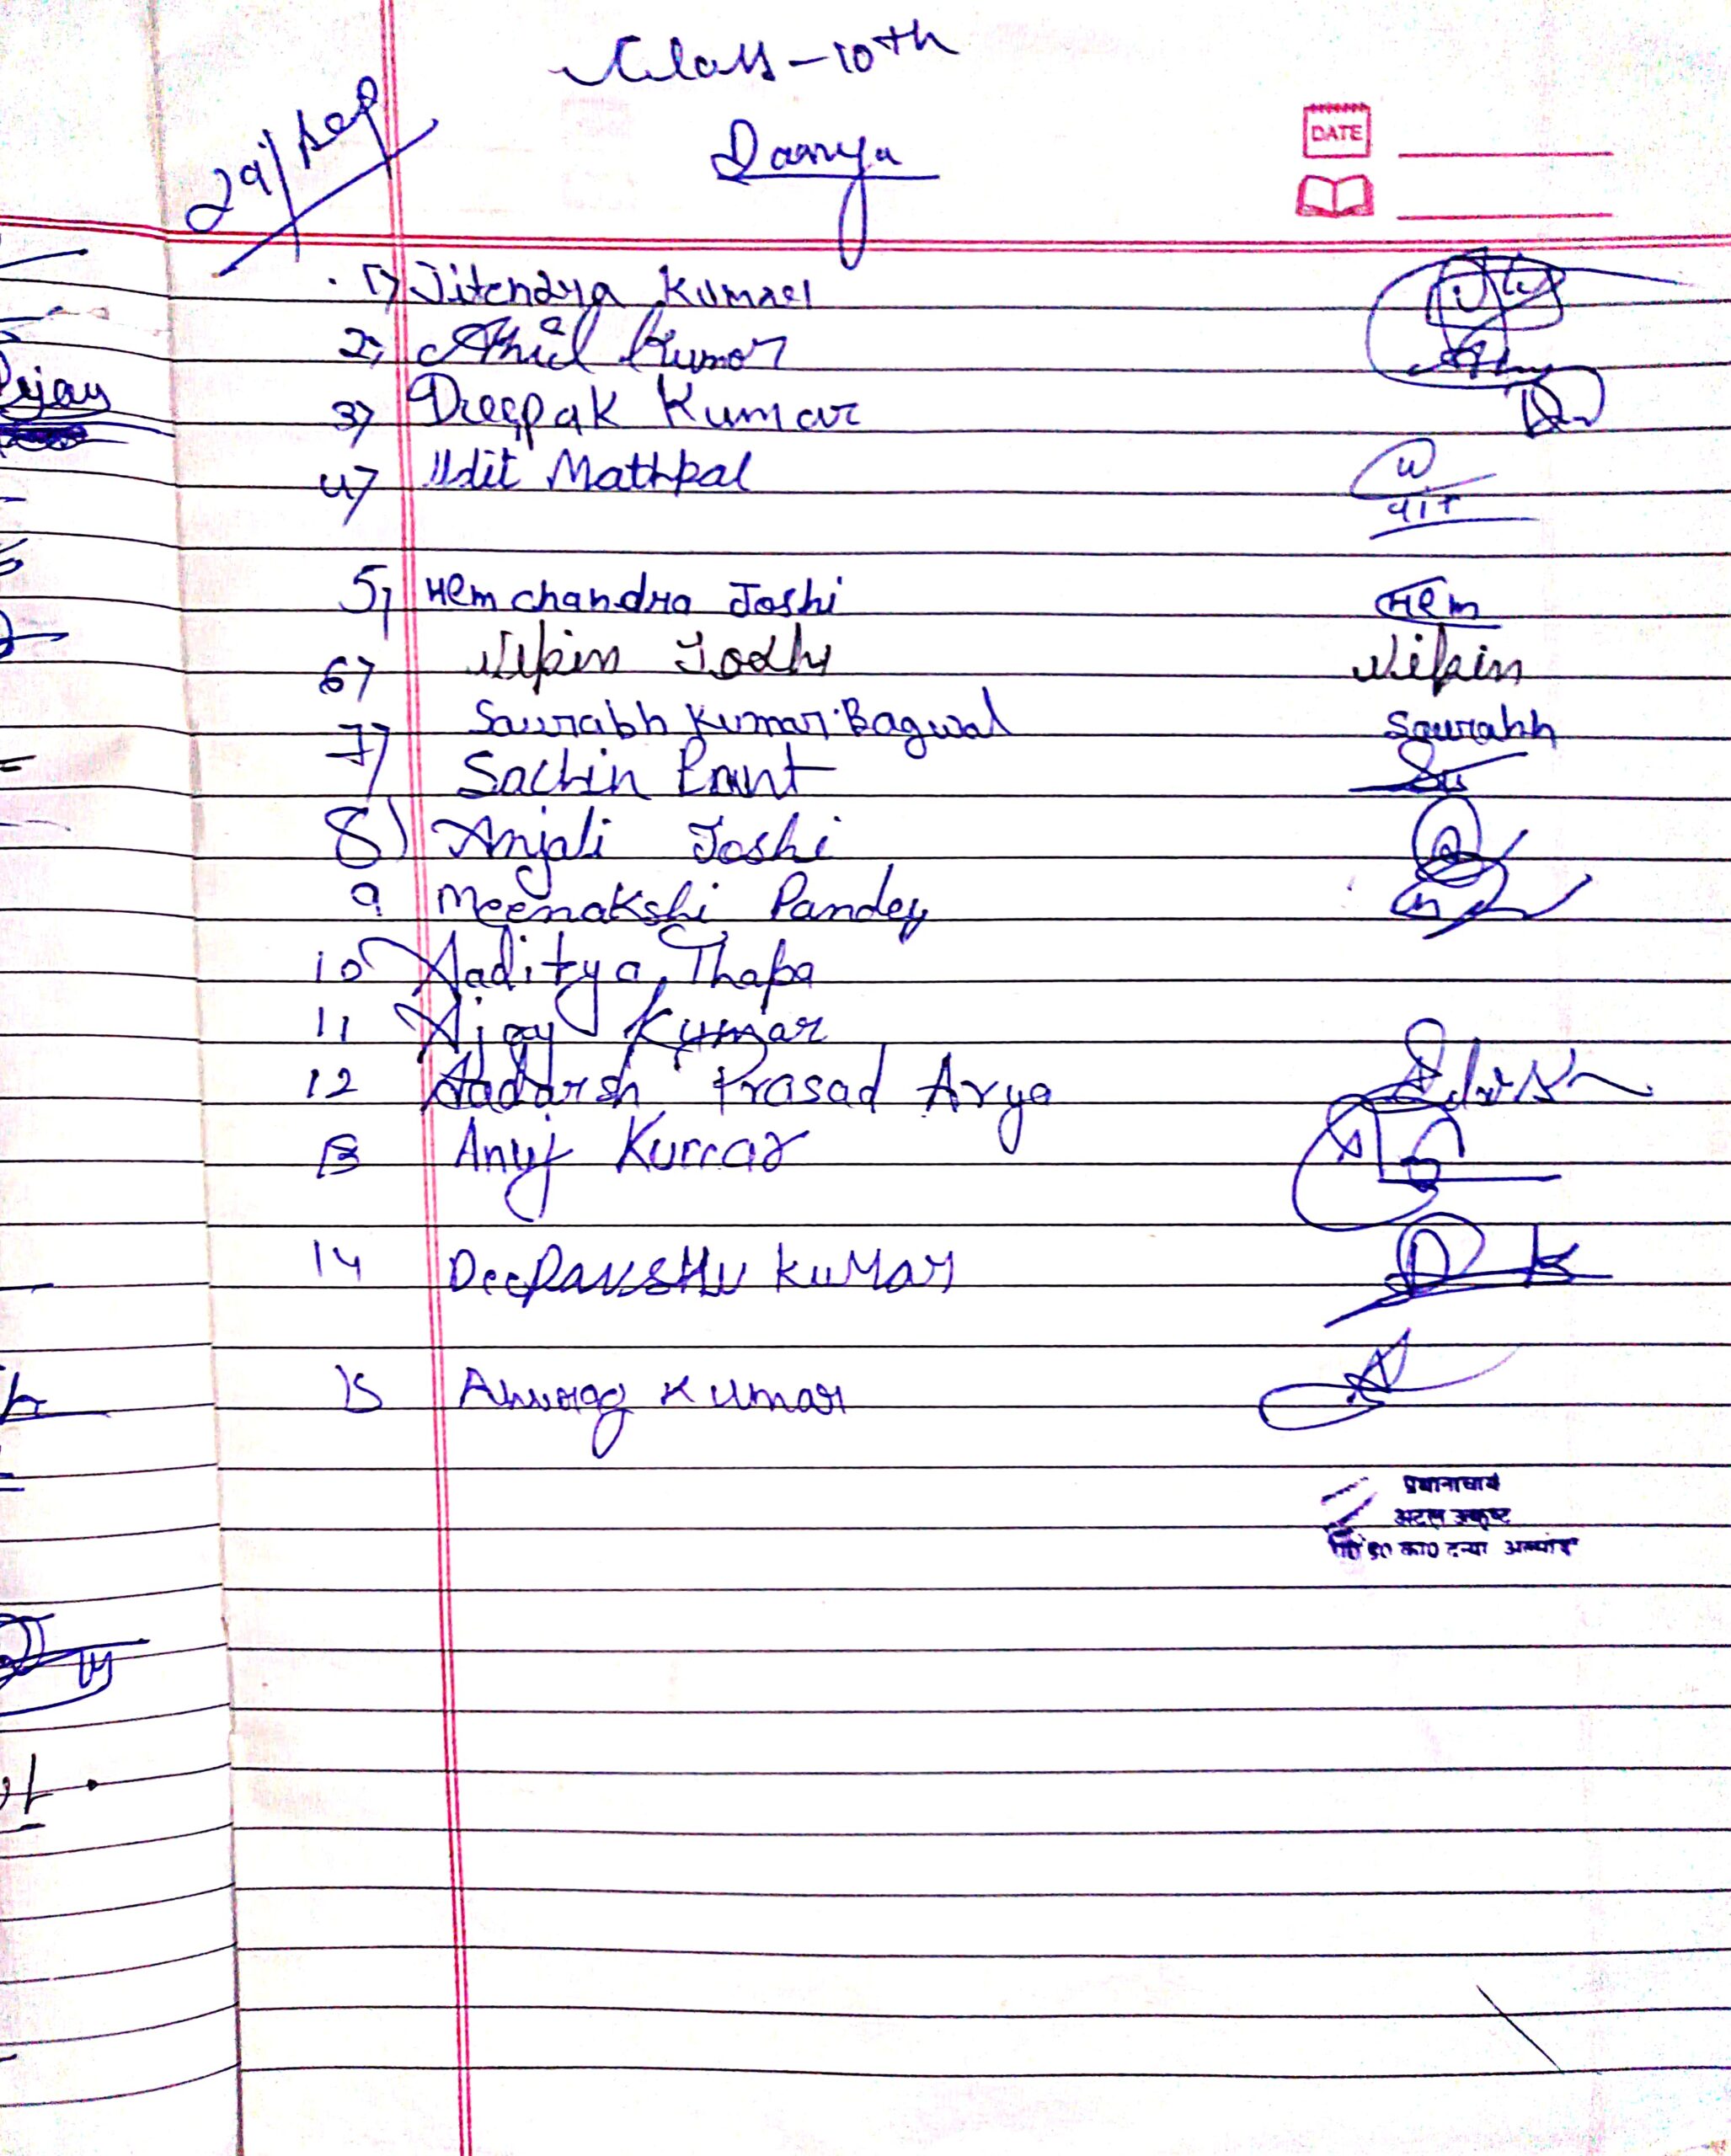 Class - 10th
29/Sep
Danya
DATE
1) Jitendra Kumar
2) Anil Kumar
3) Deepak Kumar
4) Udit Mathpal
5) Hem chandra Joshi Hem
6) Vipin Joshi Vipin
Saurabh Kumar Bagwal Saurabh
7) Sachin Pant
8) Anjali Joshi
9 Meenakshi Pandey
10 Aaditya Thapa
11 Ajay Kumar
12 Aadarsh Prasad Arya
13 Anuj Kumar
14 Deepanshu Kumar
15 Anurag Kumar
प्रधानाचार्य
अटल उत्कृष्ट
रा0 इ0 का0 दन्या अल्मोड़ा